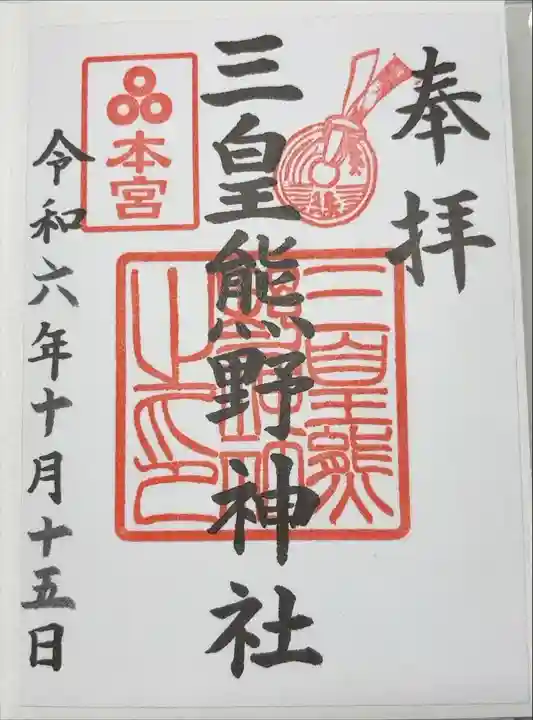 奉拝
三皇熊野神社
本宮
三皇熊
野神社
之印
令和六年十月十五日